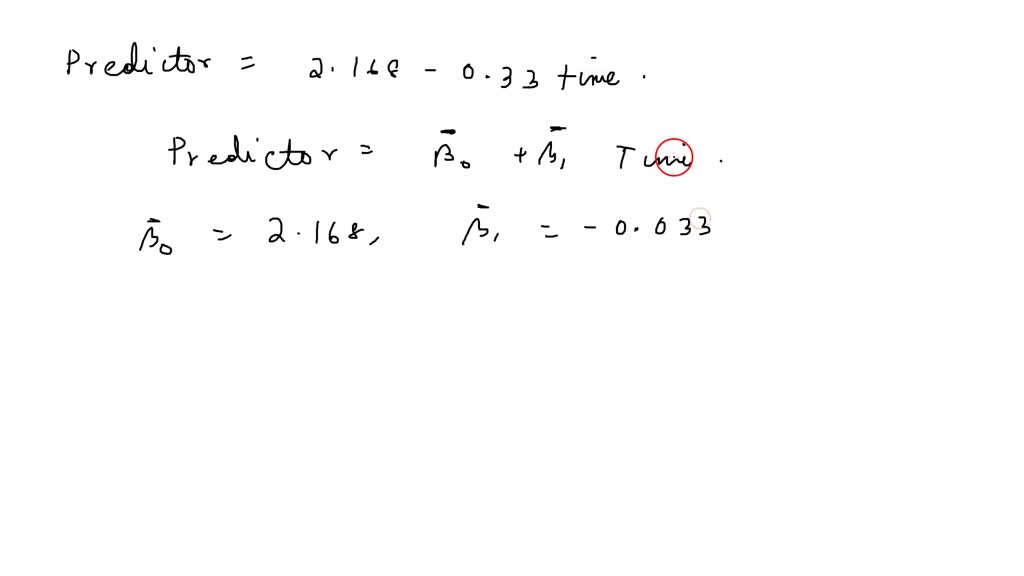 Predictor = 2.168 - 0.33 time .
Predictor = β̄₀ + β̄₁ Time .
β̄₀ = 2.168, β̄₁ = - 0.033